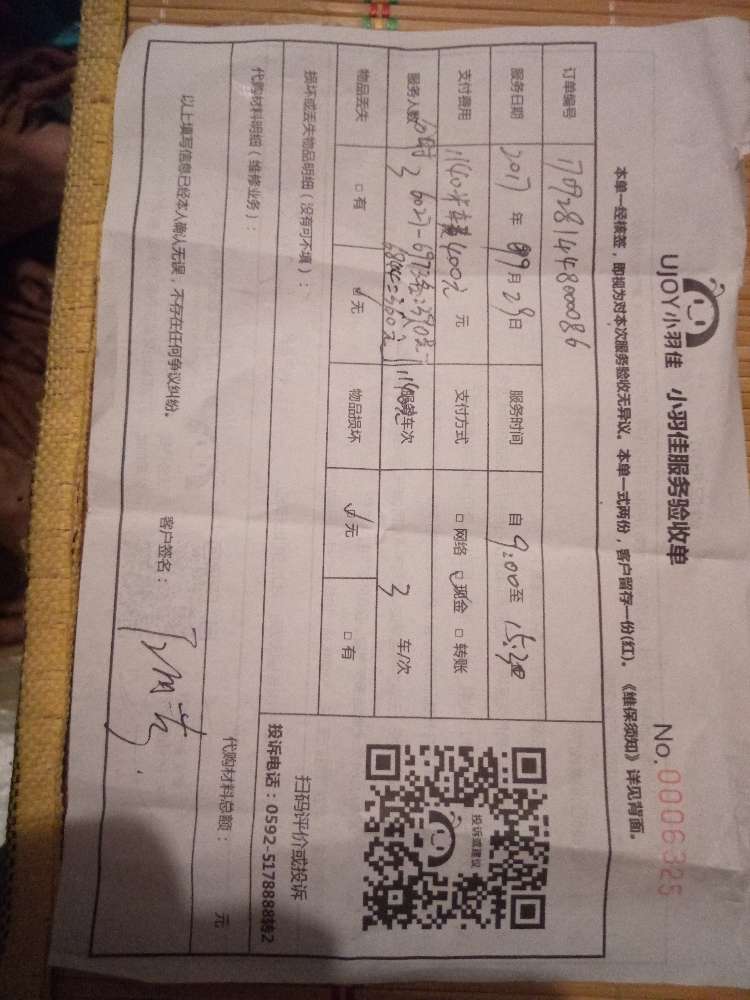 UJOY小羽佳 小羽佳服务验收单
No.0006325
本单一经核签，即视为对本次服务验收无异议。本单一式两份，客户留存一份(红)。《维保须知》详见背面。
订单编号 170928144800086
服务日期 2017 年 09 月 29 日 服务时间 自 9:00 至
支付费用 1140 元 支付方式 □ 网络 ☑ 现金 □ 转账
服务人数 3 服务车次 3 车/次
物品丢失 □ 有 ☑ 无 物品损坏 ☑ 无 □ 有
损坏或丢失物品明细（没有可不填）：
代购材料明细（维修业务）：
代购材料总额： 元
以上填写信息已经本人确认无误，不存在任何争议纠纷。
客户签名：
投诉或建议
扫码评价或投诉
投诉电话：0592-5178888转2